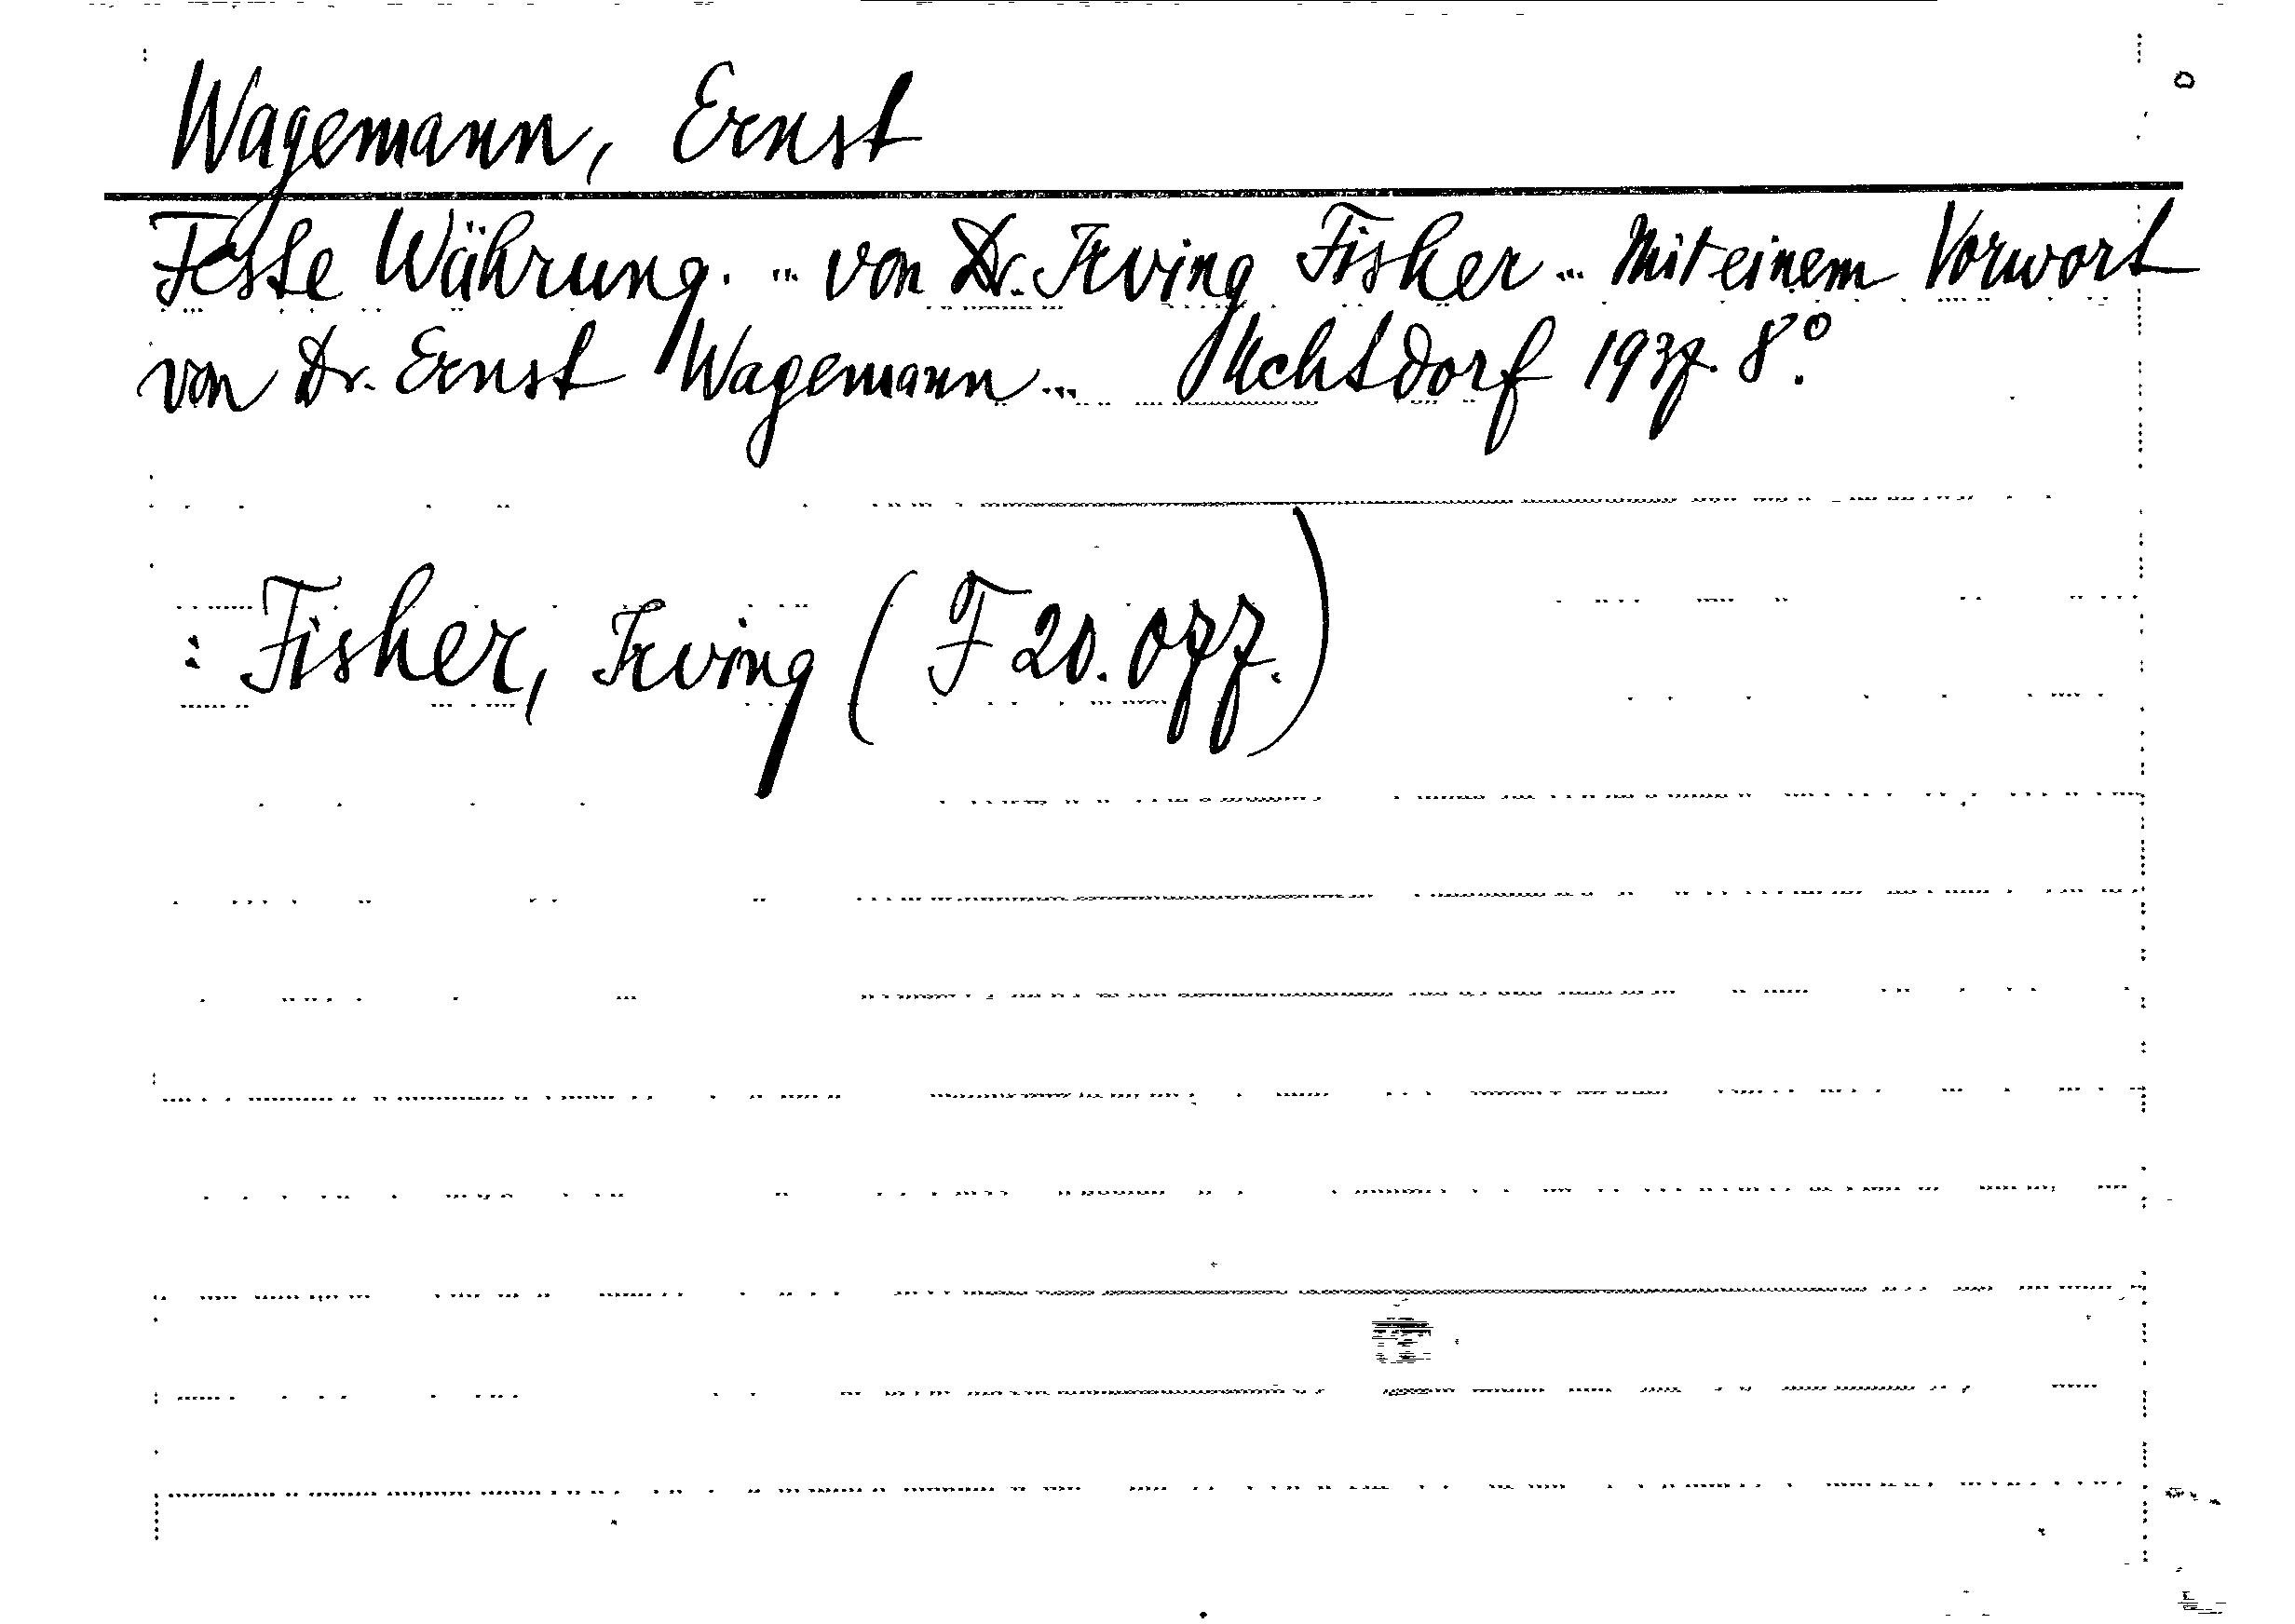 Wagemann, Ernst
Feste Währung. ... von Dr. Irving Fisher ... Mit einem Vorwort
von Dr. Ernst Wagemann ... Uchtdorf 1937. 8°.
: Fisher, Irving (F 20.077.)